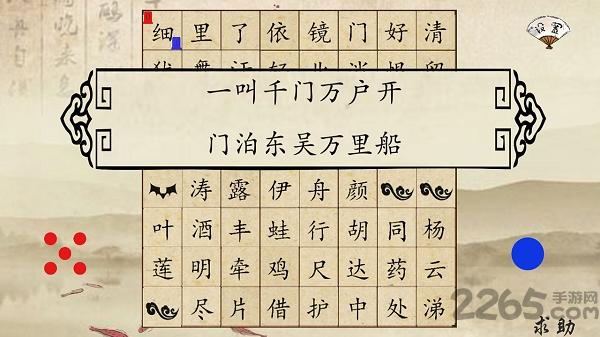 设置
细里了依镜门好清
一叫千门万户开
门泊东吴万里船
涛露伊舟颜
叶酒丰蛙行胡同杨
莲明牵鸡尺达药云
尽片借护中处涕
2265手游网
.COM
求助